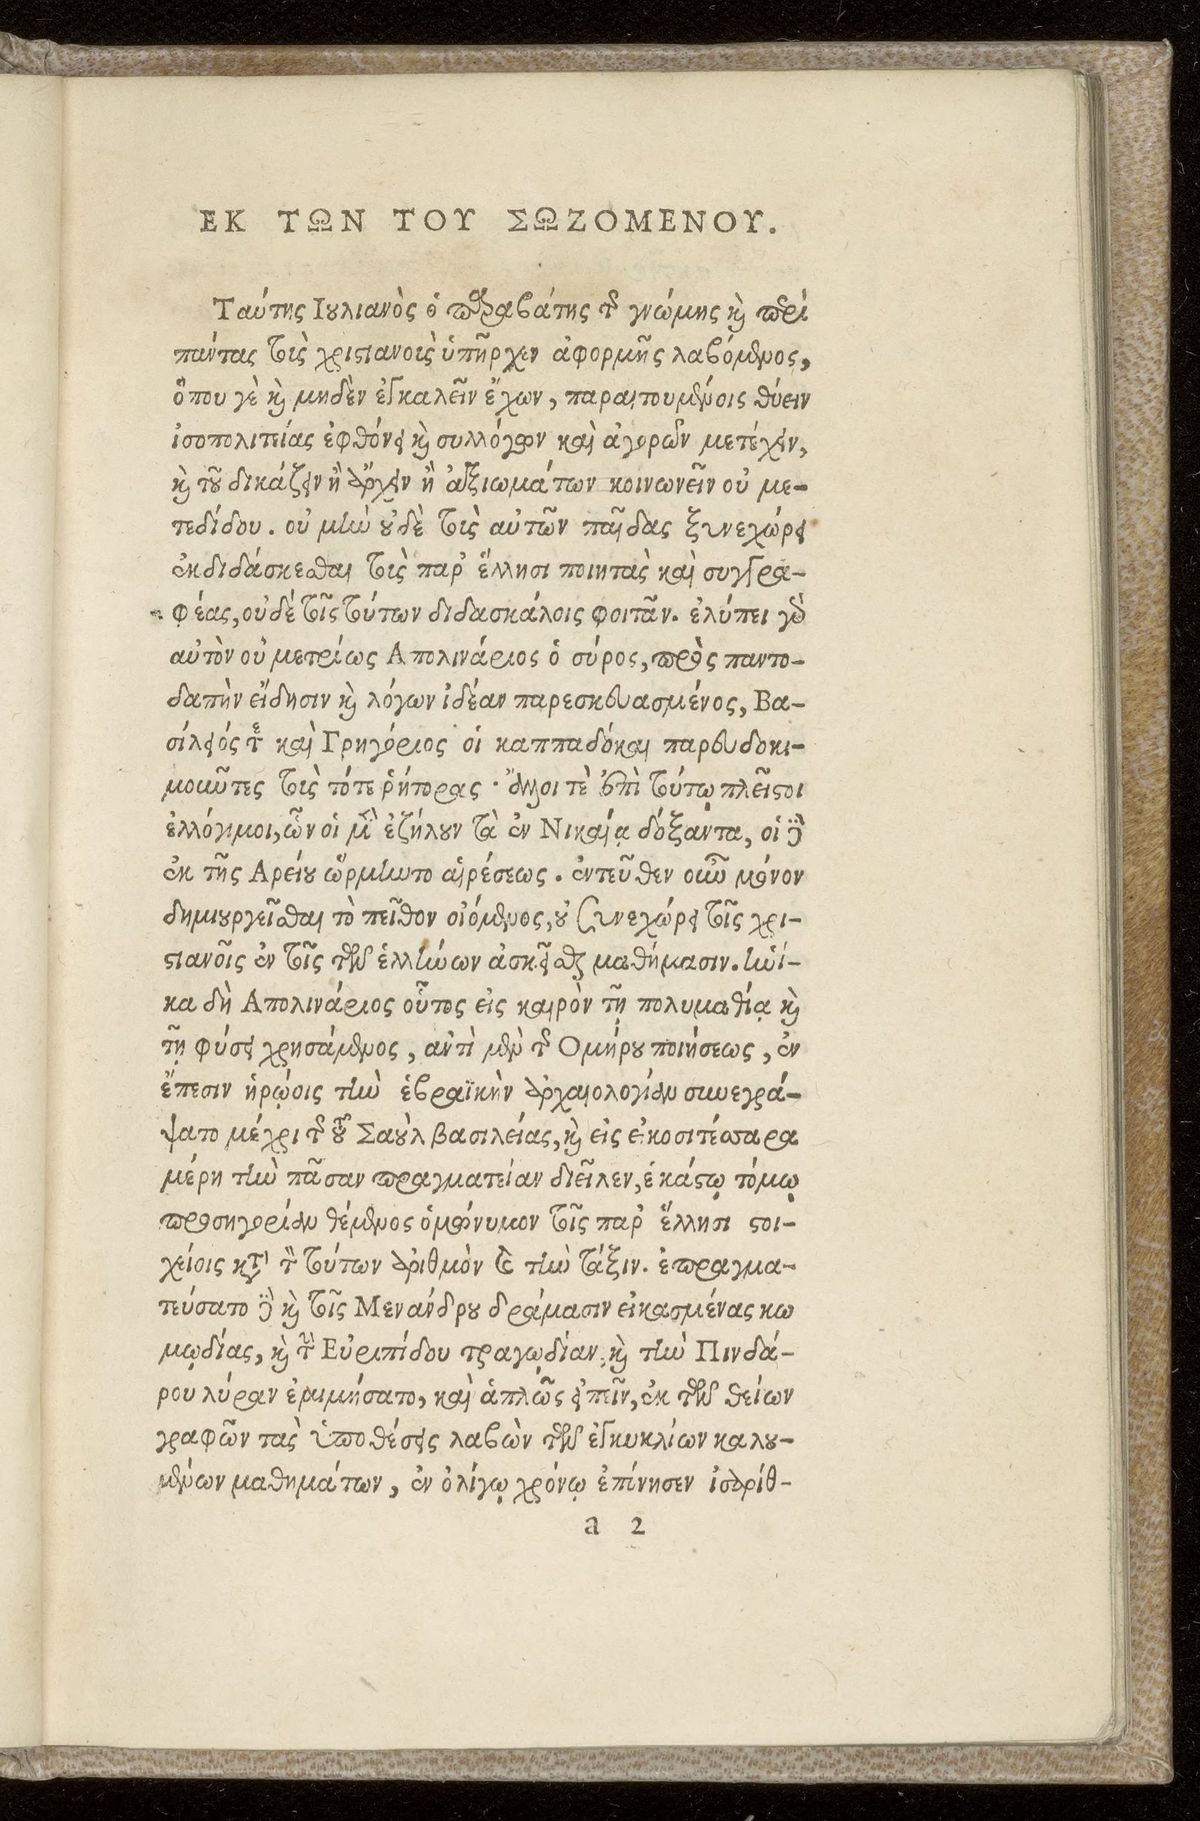 ΕΚ ΤΩΝ ΤΟΥ ΣΩΖΟΜΕΝΟΥ.
Ταύτης Ιουλιανὸς ὁ παραβάτης τῆς γνώμης καὶ περὶ
πάντας τοὺς χριστιανοὺς ὑπῆρχεν ἀφορμῆς λαβόμενος,
ὅπου γὲ καὶ μηδὲν ἐγκαλεῖν ἔχων, παραιτουμένοις θύειν
ἰσοπολιτείας ἐφθόνει καὶ συλλόγων καὶ ἀγορῶν μετέχειν,
καὶ τοῦ δικάζειν ἢ ἄρχειν ἢ ἀξιωμάτων κοινωνεῖν οὐ με-
τεδίδου. οὐ μὴν οὐδὲ τοὺς αὐτῶν παῖδας ξυνεχώρει
ἐκδιδάσκεσθαι τοὺς παρ' ἕλλησι ποιητὰς καὶ συγγρα-
φέας, οὐδὲ τοῖς τούτων διδασκάλοις φοιτᾶν. ἐλύπει γὰρ
αὐτὸν οὐ μετρίως Απολινάριος ὁ σύρος, πρὸς παντο-
δαπὴν εἴδησιν καὶ λόγων ἰδέαν παρεσκευασμένος, Βα-
σίλειός τε καὶ Γρηγόριος οἱ καππαδόκαι παρευδοκι-
μοῦντες τοὺς τότε ῥήτορας · ἄλλοι τὲ ἐπὶ τούτῳ πλεῖστοι
ἐλλόγιμοι, ὧν οἱ μὲν ἐζήλουν τὰ ἐν Νικαίᾳ δόξαντα, οἱ δὲ
ἐκ τῆς Αρείου ὥρμηντο αἱρέσεως. ἐντεῦθεν οὖν μόνον
δημιουργεῖσθαι τὸ πεῖθον οἰόμενος, οὐ συνεχώρει τοῖς χρι-
στιανοῖς ἐν τοῖς τῶν ἑλλήνων ἀσκεῖσθαι μαθήμασιν. ἡνί-
κα δὴ Απολινάριος οὗτος εἰς καιρὸν τῇ πολυμαθίᾳ καὶ
τῇ φύσει χρησάμενος, ἀντὶ μὲν τῆς Ομήρου ποιήσεως, ἐν
ἔπεσιν ἡρῴοις τὴν ἑβραϊκὴν ἀρχαιολογίαν συνεγρά-
ψατο μέχρι τῆς τοῦ Σαοὺλ βασιλείας, καὶ εἰς εἰκοσιτέσσαρα
μέρη τὴν πᾶσαν πραγματείαν διεῖλεν, ἑκάστῳ τόμῳ
προσηγορίαν θέμενος ὁμώνυμον τοῖς παρ' ἕλλησι στοι-
χείοις κατὰ τὸν τούτων ἀριθμὸν καὶ τὴν τάξιν. ἐπραγμα-
τεύσατο δὲ καὶ τοῖς Μενάνδρου δράμασιν εἰκασμένας κω
μῳδίας, καὶ τὴν Εὐριπίδου τραγῳδίαν, καὶ τὴν Πινδά-
ρου λύραν ἐμιμήσατο, καὶ ἁπλῶς εἰπεῖν, ἐκ τῶν θείων
γραφῶν τὰς ὑποθέσεις λαβὼν τῶν ἐγκυκλίων καλου-
μένων μαθημάτων, ἐν ὀλίγῳ χρόνῳ ἐπόνησεν ἰσάριθ-
a 2